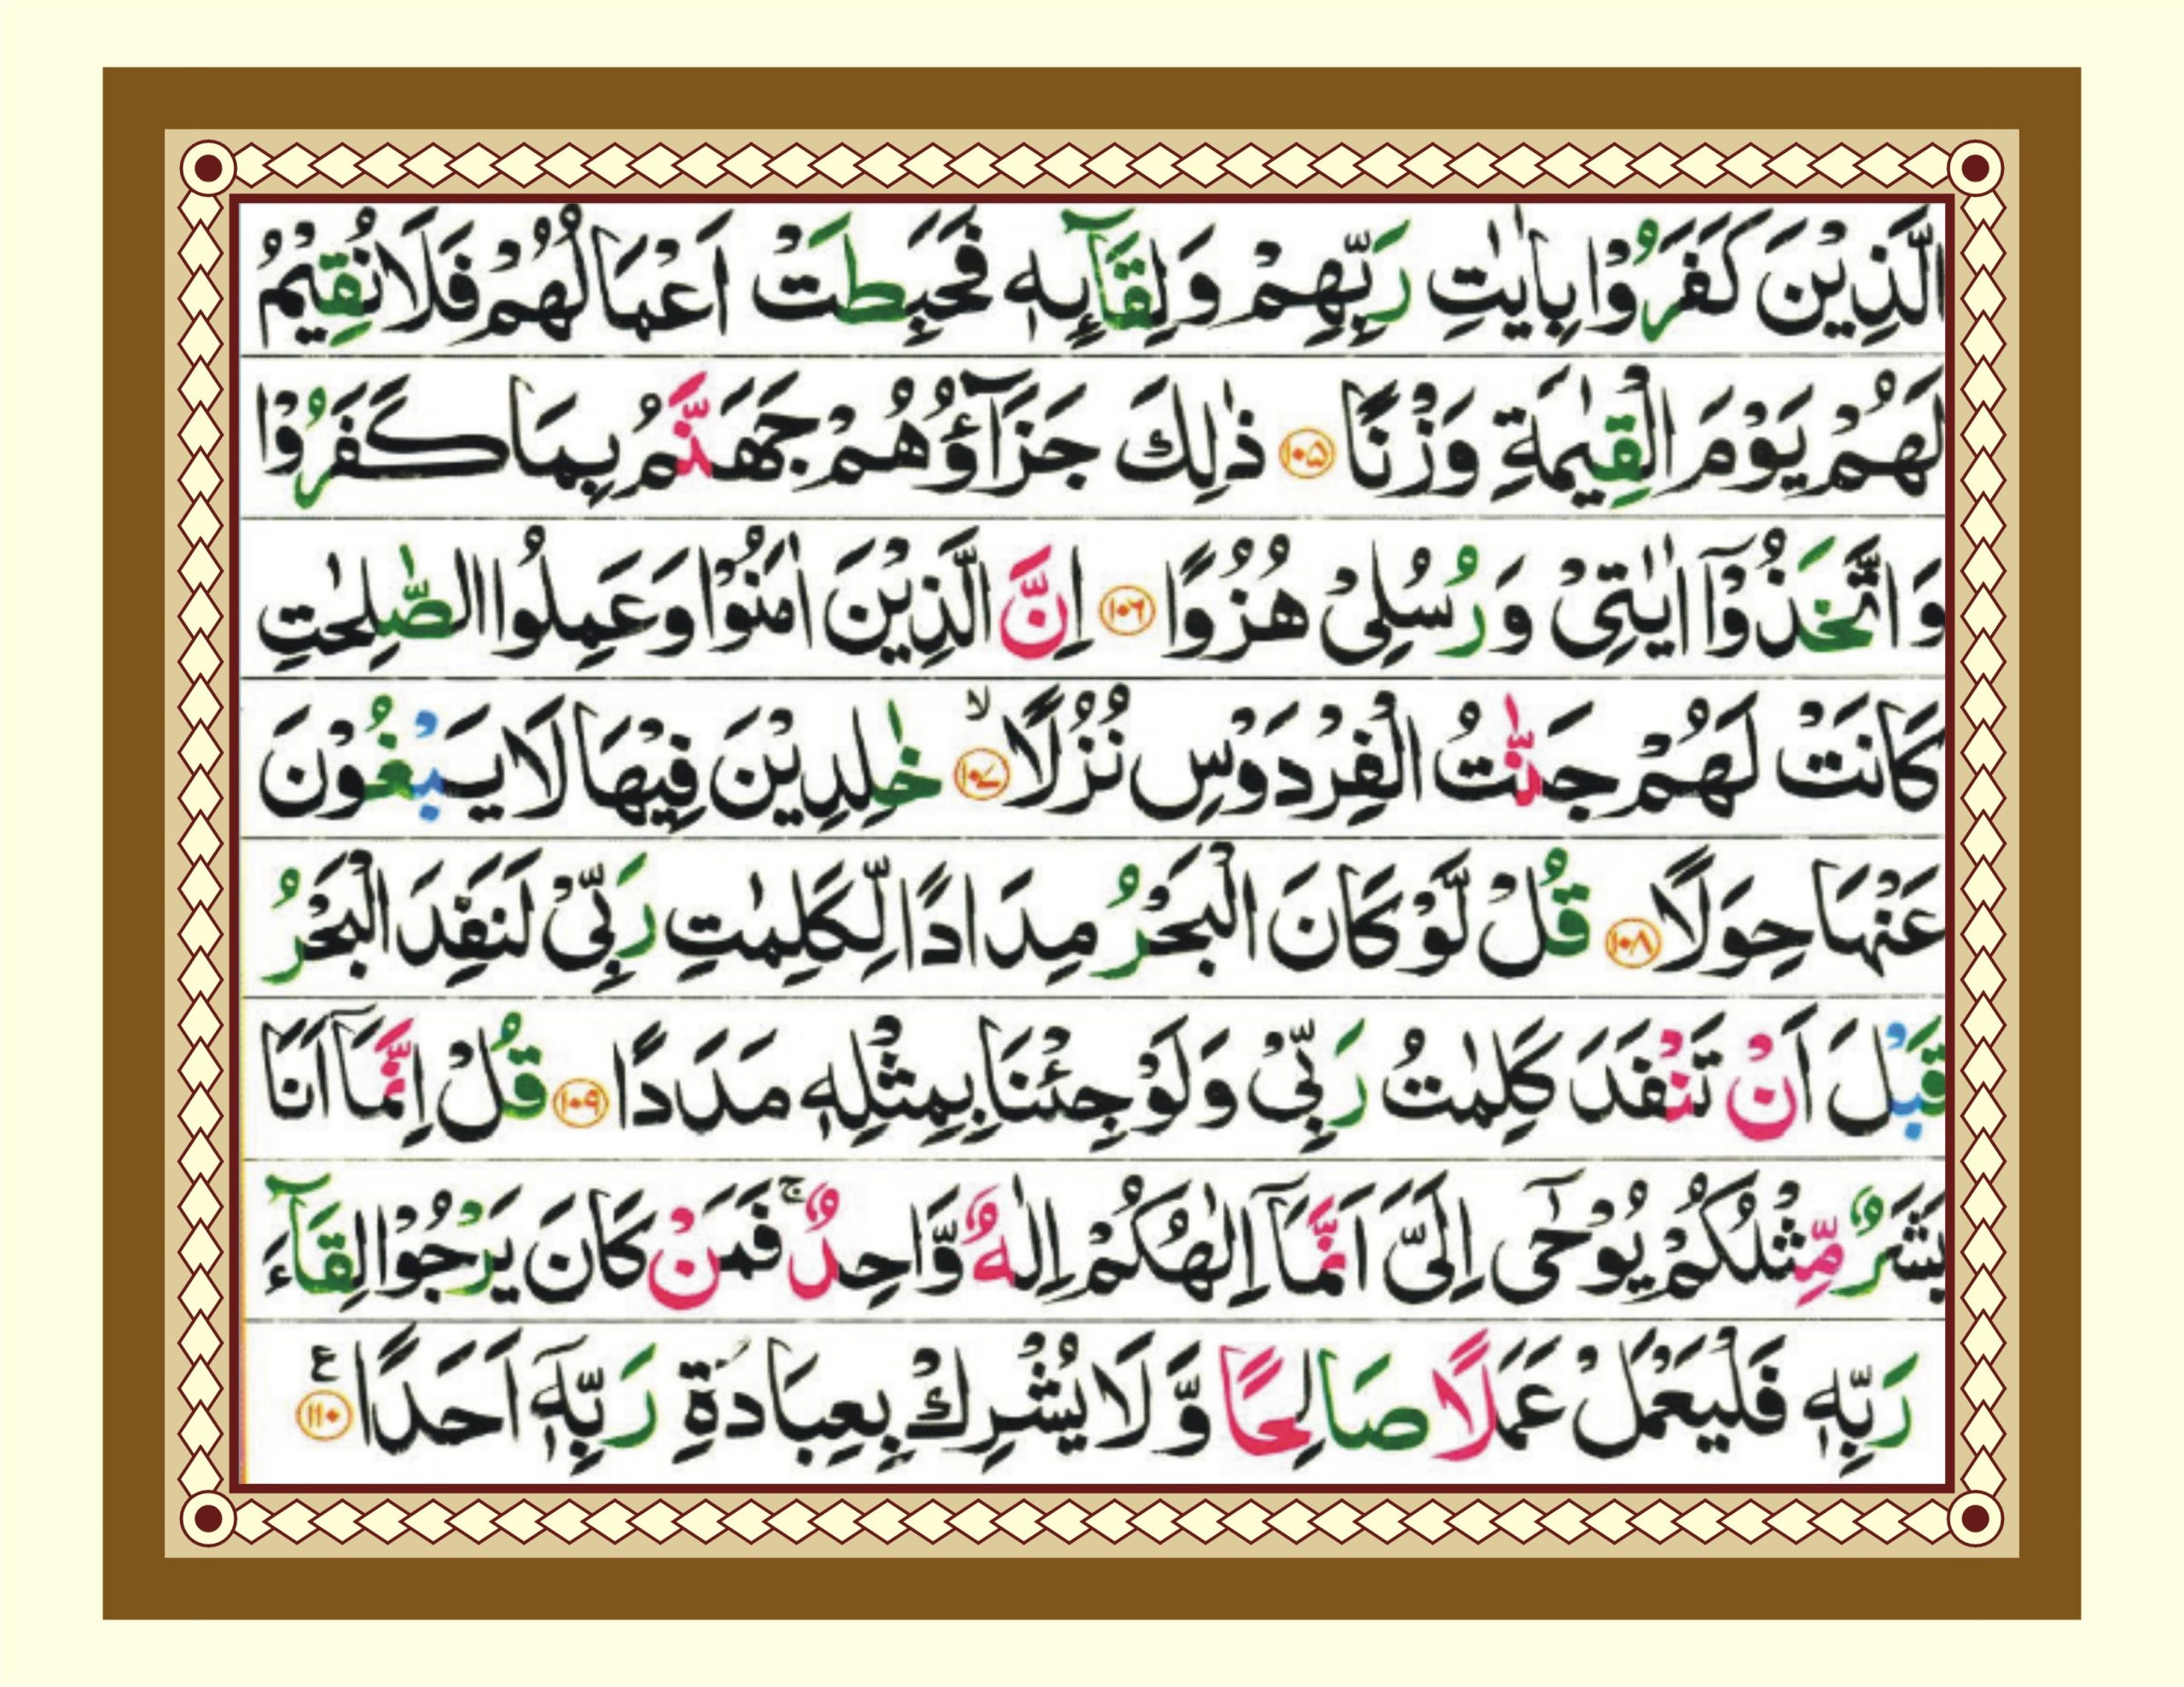 الَّذِيْنَ كَفَرُوْا بِاٰيٰتِ رَبِّهِمْ وَلِقَآىِٕهٖ فَحَبِطَتْ اَعْمَالُهُمْ فَلَا نُقِيْمُ
لَهُمْ يَوْمَ الْقِيٰمَةِ وَزْنًا ۝۱۰۵ ذٰلِكَ جَزَآؤُهُمْ جَهَنَّمُ بِمَا كَفَرُوْا
وَ اتَّخَذُوْۤا اٰيٰتِيْ وَ رُسُلِيْ هُزُوًا ۝۱۰۶ اِنَّ الَّذِيْنَ اٰمَنُوْا وَ عَمِلُوا الصّٰلِحٰتِ
كَانَتْ لَهُمْ جَنّٰتُ الْفِرْدَوْسِ نُزُلًا ۝۱۰۷ۙ خٰلِدِيْنَ فِيْهَا لَا يَبْغُوْنَ
عَنْهَا حِوَلًا ۝۱۰۸ قُلْ لَّوْ كَانَ الْبَحْرُ مِدَادًا لِّكَلِمٰتِ رَبِّيْ لَنَفِدَ الْبَحْرُ
قَبْلَ اَنْ تَنْفَدَ كَلِمٰتُ رَبِّيْ وَلَوْ جِئْنَا بِمِثْلِهٖ مَدَدًا ۝۱۰۹ قُلْ اِنَّمَاۤ اَنَا
بَشَرٌ مِّثْلُكُمْ يُوْحٰۤى اِلَيَّ اَنَّمَاۤ اِلٰهُكُمْ اِلٰهٌ وَّاحِدٌ ۚ فَمَنْ كَانَ يَرْجُوْا لِقَآءَ
رَبِّهٖ فَلْيَعْمَلْ عَمَلًا صَالِحًا وَّ لَا يُشْرِكْ بِعِبَادَةِ رَبِّهٖۤ اَحَدًا ۝۱۱۰ ع